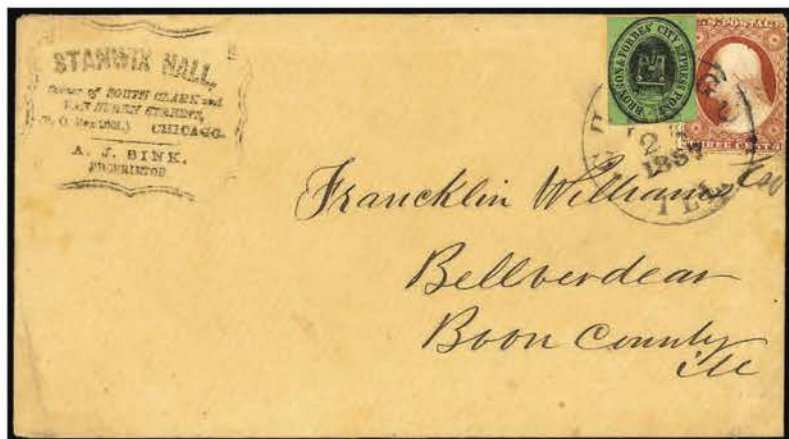 STANWIX HALL,
Corner of SOUTH CLARK and
VAN BUREN STREETS,
CHICAGO.
A. J. SINK,
PROPRIETOR
BRONSON & FORBES' CITY EXPRESS POST
U.S. POSTAGE
THREE CENTS
2
1857
ILL
Francklin Williams Esq
Bellverdear
Boon County
Ill